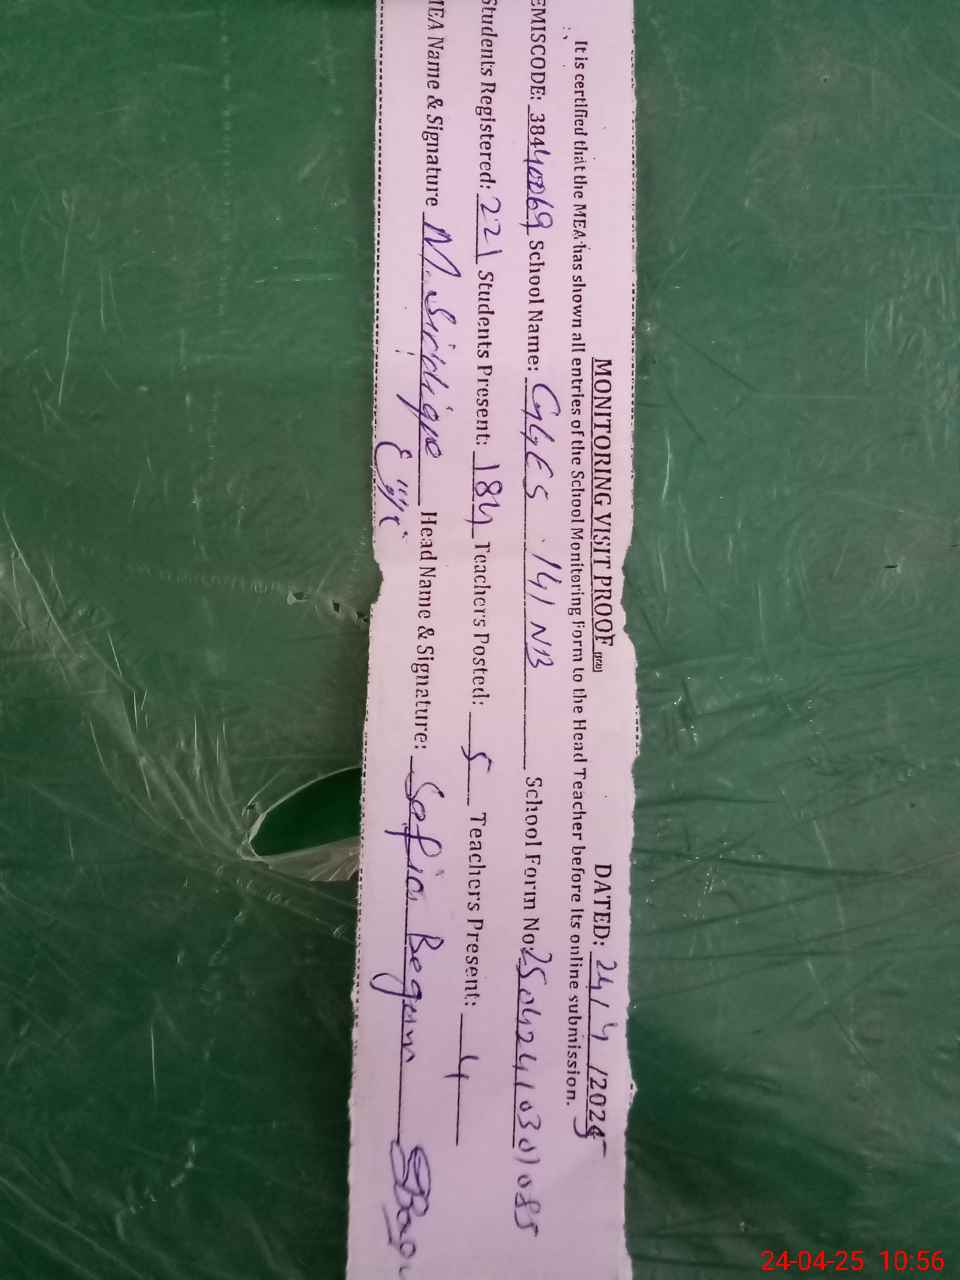 MONITORING VISIT PROOF DATED: 24/4/2025
It is certified that the MEA has shown all entries of the School Monitoring Form to the Head Teacher before its online submission.
EMISCODE: 38440069 School Name: GGES 141 NB School Form No: 25042410301085
Students Registered: 221 Students Present: 184 Teachers Posted: 5 Teachers Present: 4
MEA Name & Signature M. Siddique Head Name & Signature: Safia Begum
24-04-25 10:56